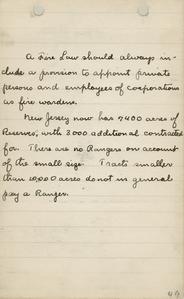 A Fire Law should always in-
clude a provision to appoint private
persons and employees of corporations
as fire wardens.
New Jersey now has 7400 acres of
Reserves, with 3000 additional contracted
for. There are no Rangers on account
of the small size. Tracts smaller
than 10,000 acres do not in general
pay a Ranger.